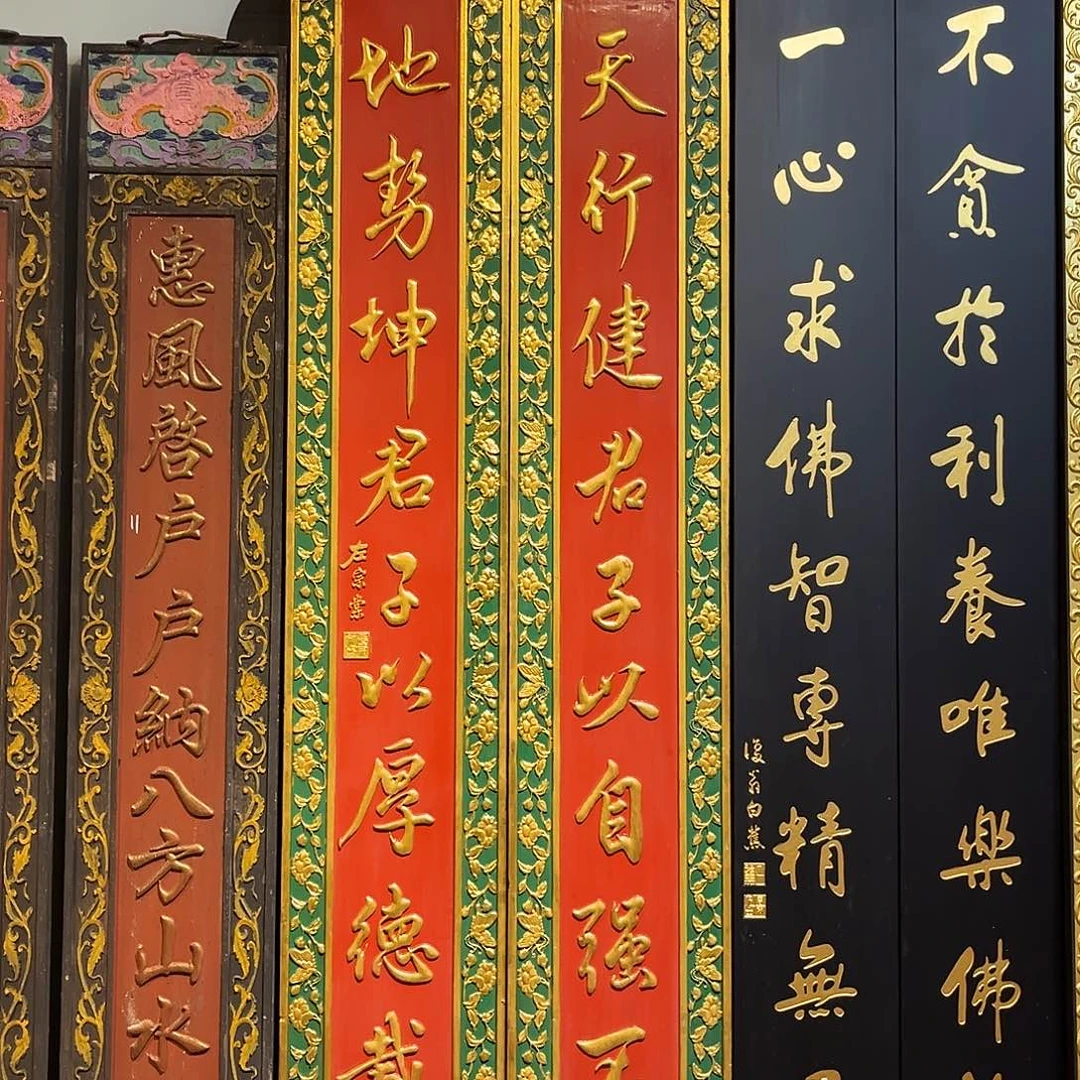 不貪於利養唯樂佛
一心求佛智專精無
復翁白蕉
天行健君子以自强不
地勢坤君子以厚德載
左宗棠
惠風啓户户納八方山水